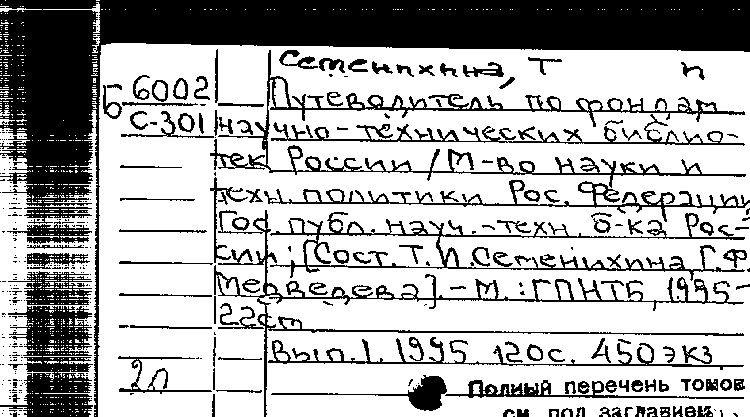 Семенихина, Т И
Б 6002 Путеводитель по фондам
С-301 научно-технических библио-
тек России / М-во науки и
техн. политики Рос. Федерации
Гос. публ. науч.-техн. б-ка Рос-
сии; [Сост. Т. И. Семенихина, Г.Ф
Медведева]. - М. : ГПНТБ, 1995-
22см
Вып. 1. 1995. 120с. 450экз.
2п
Полный перечень томов
см. под заглавием